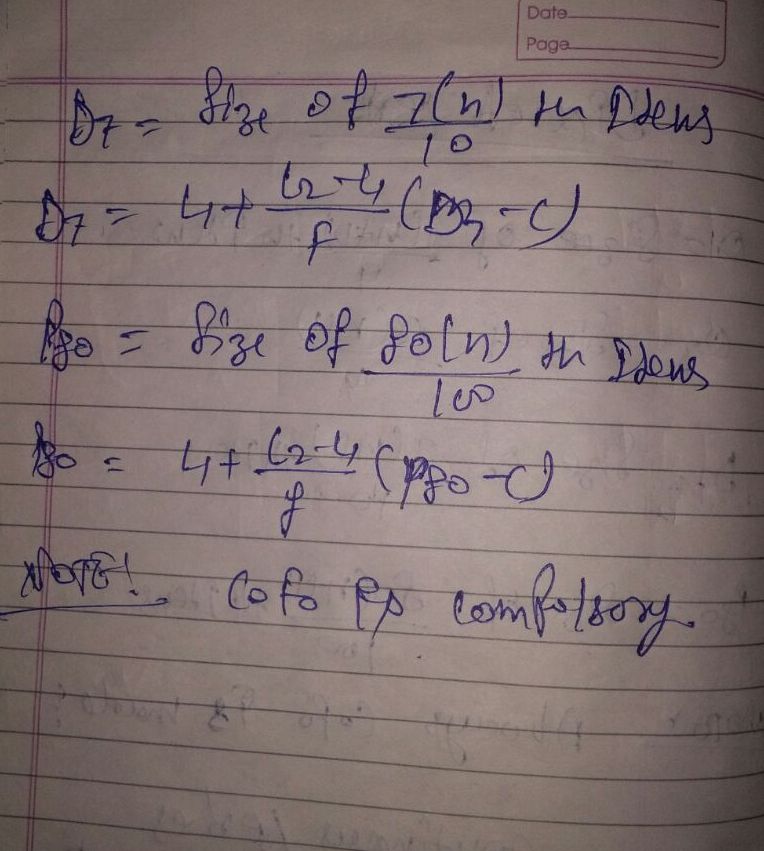 Date
Page
D7 = Size of 7(n)/10 th Items
D7 = L1 + L2-L1/f (D7 - C)
P80 = Size of 80(n)/100 th Items
P80 = L1 + L2-L1/f (P80 - C)
NOTE! Cofo is compolsory.